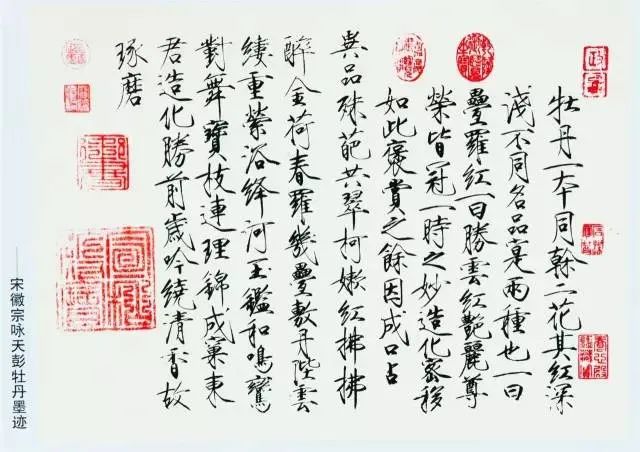 牡丹一本同幹二花其紅深
淺不同名品寔兩種也一曰
疊羅紅一曰勝雲紅艷麗尊
榮皆冠一時之妙造化密移
如此褒賞之餘因成口占
異品殊葩共翠柯嫩紅拂拂
醉金荷春羅幾疊敷丹陛雲
縷重縈浴絳河玉鑑和鳴鸞
對舞寶枝連理錦成窠東
君造化勝前歲吟繞清香故
琢磨
——宋徽宗咏天彭牡丹墨迹